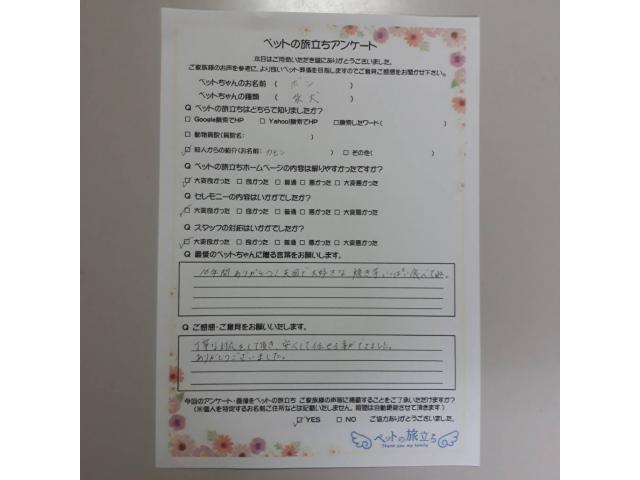 ペットの旅立ちアンケート
本日はご用命いただき誠にありがとうございました。
ご家族様のお声を参考に、より良いペット葬儀を目指しますのでご意見ご感想をお聞かせ下さい。
ペットちゃんのお名前 ( ボン )
ペットちゃんの種類 ( 柴犬 )
Q ペットの旅立ちはどちらで知りましたか?
□ Google検索でHP □ Yahoo!検索でHP □検索したワード( )
□ 動物病院(病院名: )
☑ 知人からの紹介(お名前: ) □ その他( )
Q ペットの旅立ちホームページの内容は解りやすかったですか?
☑ 大変良かった □ 良かった □ 普通 □ 悪かった □ 大変悪かった
Q セレモニーの内容はいかがでしたか?
☑ 大変良かった □ 良かった □ 普通 □ 悪かった □ 大変悪かった
Q スタッフの対応はいかがでしたか?
☑ 大変良かった □ 良かった □ 普通 □ 悪かった □ 大変悪かった
Q 最後のペットちゃんに贈る言葉をお願いします。
年間ありがとう!天国で大好きな焼き芋いっぱい食べてね。
Q ご感想・ご意見をお願いいたします。
丁寧な対応をして頂き、安心して任せる事ができました。
ありがとうございました。
今回のアンケート・画像をペットの旅立ち ご家族様の声等に掲載することをご了承いただけますか?
(※個人を特定するお名前ご住所などは記載いたしません。期間は自動更新させて頂きます)
☑ YES □ NO ご協力ありがとうございました。
ペットの旅立ち
Thank you my family